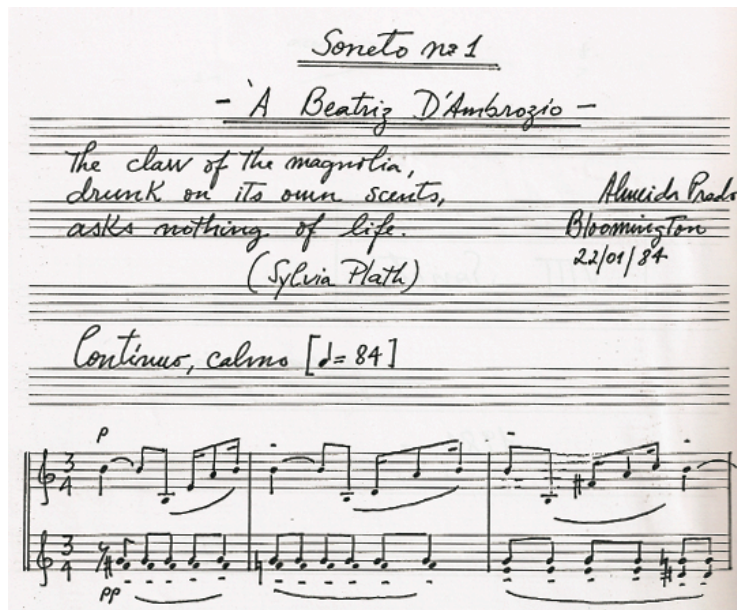 Soneto nº 1
- À Beatriz D'Ambrozio -
The claw of the magnolia,
drunk on its own scents,
asks nothing of life.
(Sylvia Plath)
Almeida Prado
Bloomington
22/01/84
Contínuo, calmo [♩= 84]
p
3
4
3
4
pp